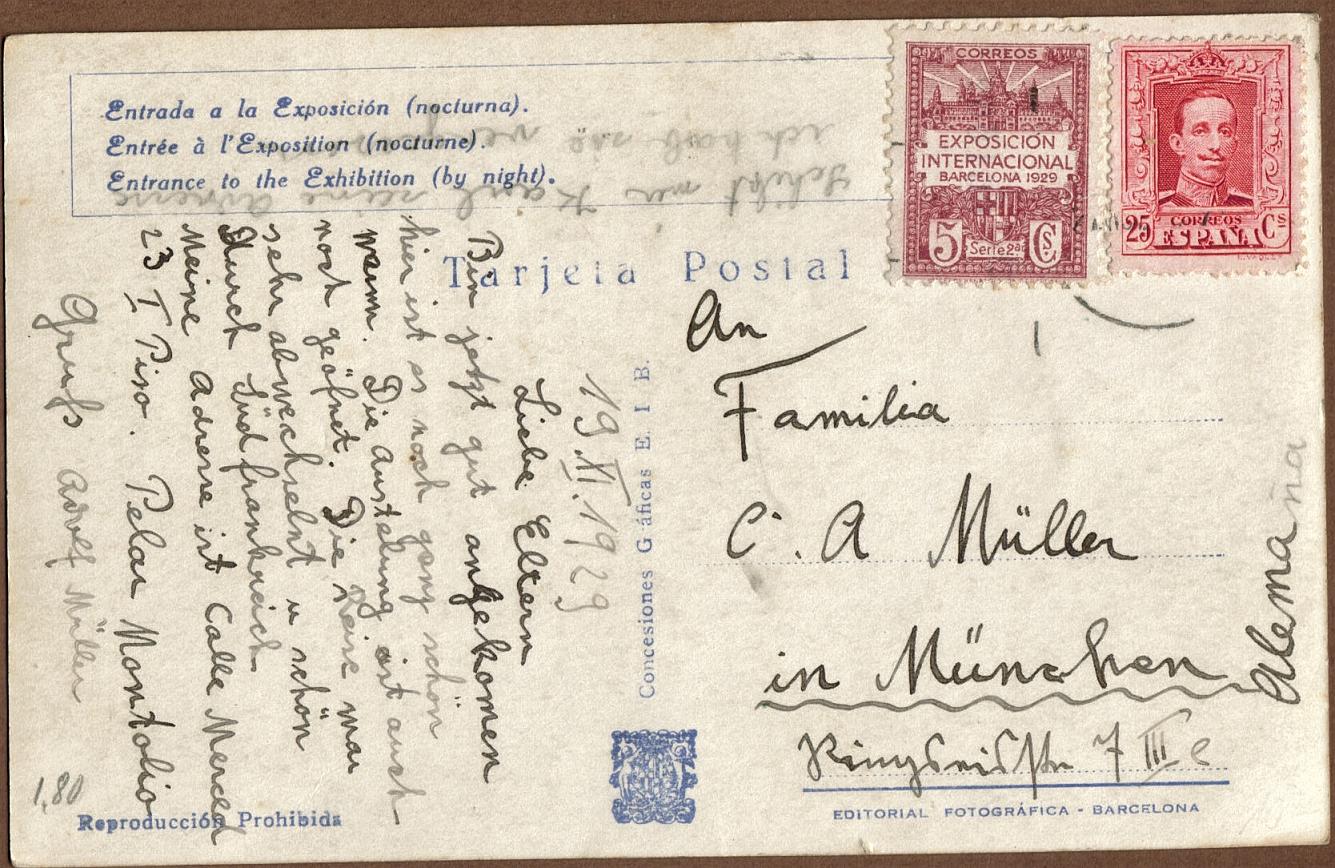 Entrada a la Exposición (nocturna).
Entrée à l'Exposition (nocturne).
Entrance to the Exhibition (by night).
Schikt mir Karl seine Adresse
ich hab sie
CORREOS
EXPOSICIÓN
INTERNACIONAL
BARCELONA 1929
5 Serie 2ª Cs
CORREOS
25 ESPAÑA Cs
Tarjeta Postal
19.XI.1929
Liebe Eltern
Bin jetzt gut angekomen
hier ist es noch ganz schön
warm. Die Austelung ist auch
noch geöfnet. Die Reise war
sehr abwechselnt u schön
durch Südfrankreich.
Meine Adresse ist Calle Merced
23 I Piso. Pelar Montolio
Gruß Adolf Müller
1,80
Reproducción Prohibida
Concesiones Gráficas E. I. B.
An
Familia
C. A Müller
in München
Ringseisstr 7 III
Alemana
EDITORIAL FOTOGRÁFICA - BARCELONA